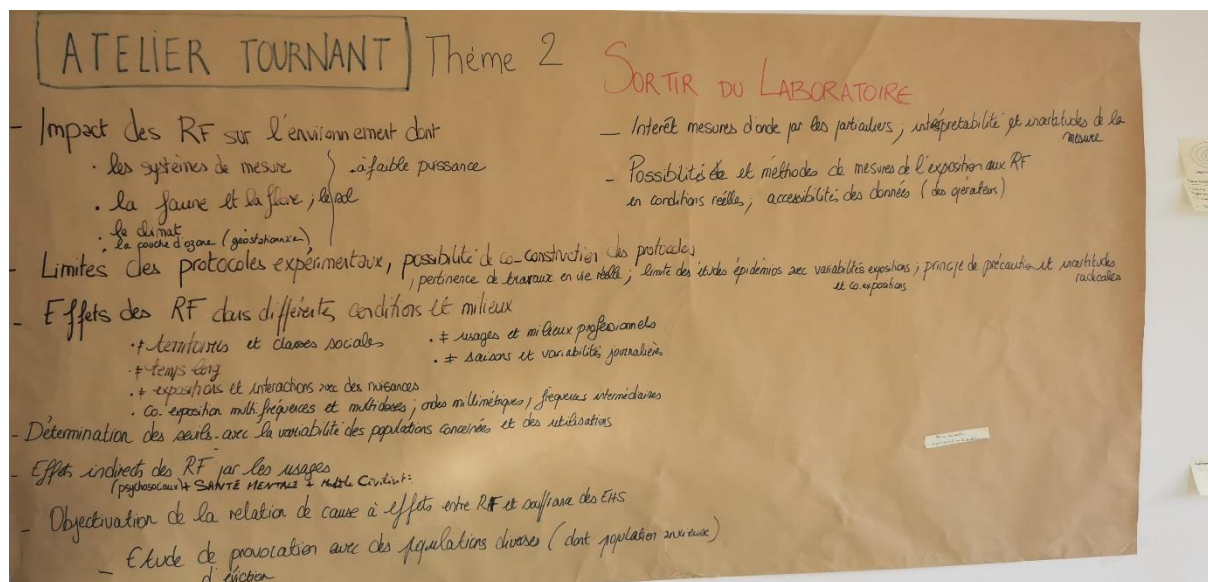 ATELIER TOURNANT Thème 2
SORTIR DU LABORATOIRE
- Impact des RF sur l'environnement dont
. les systèmes de mesure
. à faible puissance
. la faune et la flore ; le sol
. le climat
. la couche d'ozone (géostationnaire)
- Limites des protocoles expérimentaux, possibilité de co-construction des protocoles
, pertinence de travaux en vie réelle ; limite des études épidémios avec variabilités expositions ; principe de précaution et incertitudes radicales
et co-expositions
- Effets des RF dans différents conditions et milieux
. ≠ territoires et classes sociales
. ≠ temps long
. ≠ expositions et interactions avec des nuisances
. co-exposition multifréquences et multidoses ; ondes millimétriques ; fréquences intermédiaires
. ≠ usages et milieux professionnels
. ≠ saisons et variabilités journalières
- Détermination des seuils avec la variabilité des populations concernées et des utilisations
- Effets indirects des RF par les usages
(psychosociaux) + SANTÉ MENTALE +
- Objectivation de la relation de cause à effets entre RF et souffrance des EHS
- Etude de provocation avec des populations diverses (dont population anxieuse)
d'éviction
- Interêt mesures d'onde par les particuliers ; interprétabilité et incertitudes de la mesure
- Possibilités et méthodes de mesures de l'exposition aux RF
en conditions réelles ; accessibilités des données (des opérateurs)